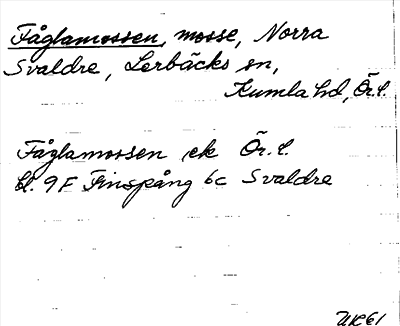 Fåglamossen, mosse, Norra
Svaldre, Lerbäcks sn,
Kumla hd, Ör.l.
Fåglamossen ek Ör.l.
bl. 9F Finspång 6c Svaldre
UK 61